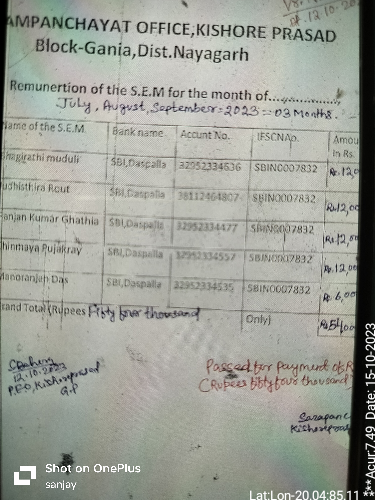 12.10.20
AMPANCHAYAT OFFICE,KISHORE PRASAD
Block-Gania,Dist.Nayagarh
Remunertion of the S.E.M for the month of................
July, August, September-2023 = 03 Months.
Name of the S.E.M. Bank name. Accunt No. IFSCNAo. Amou
In Rs.
hagirathi muduli SBI,Daspalla 32952334636 SBIN0007832 Rs.12,0
udhisthira Rout SBI,Daspalla 38112464807 SBIN0007832 Rs.12,00
anjan Kumar Ghathia SBI,Daspalla 32952334477 SBIN0007832 Rs.12,00
hinmaya Pujakray SBI,Daspalla 32952334557 SBIN0007832 Rs.12,00
Manoranjan Das SBI,Daspalla 32952334535 SBIN0007832 Rs.6,00
rand Total (Rupees Fifty four thousand Only) Rs.54,00
12.10.2023
P.E.O, Kishoreprasad
G.P
Passed for payment of R
(Rupees fifty four thousand
Sarapanc
Kishorepras
Shot on OnePlus
sanjay
Lat:Lon-20.04:85.11 *** Acur:7.49 Date:15-10-2023